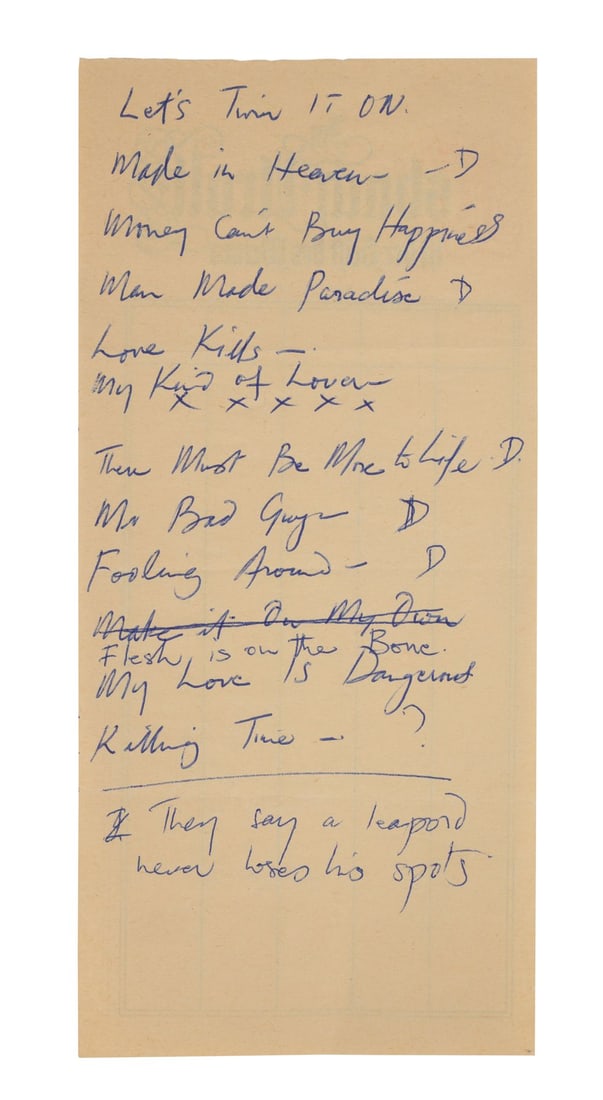 Let's Turn IT ON.
Made in Heaven - - D
Money Can't Buy Happiness
Man Made Paradise D
Love Kills -
My Kind of Lover -
x x x x x
There Must Be More to Life D.
Mr Bad Guy - D
Fooling Around - D
Make it On My Own
Flesh is on the Bone.
My Love is Dangerous
Killing Time - ?
They say a leapord
never loses his spots